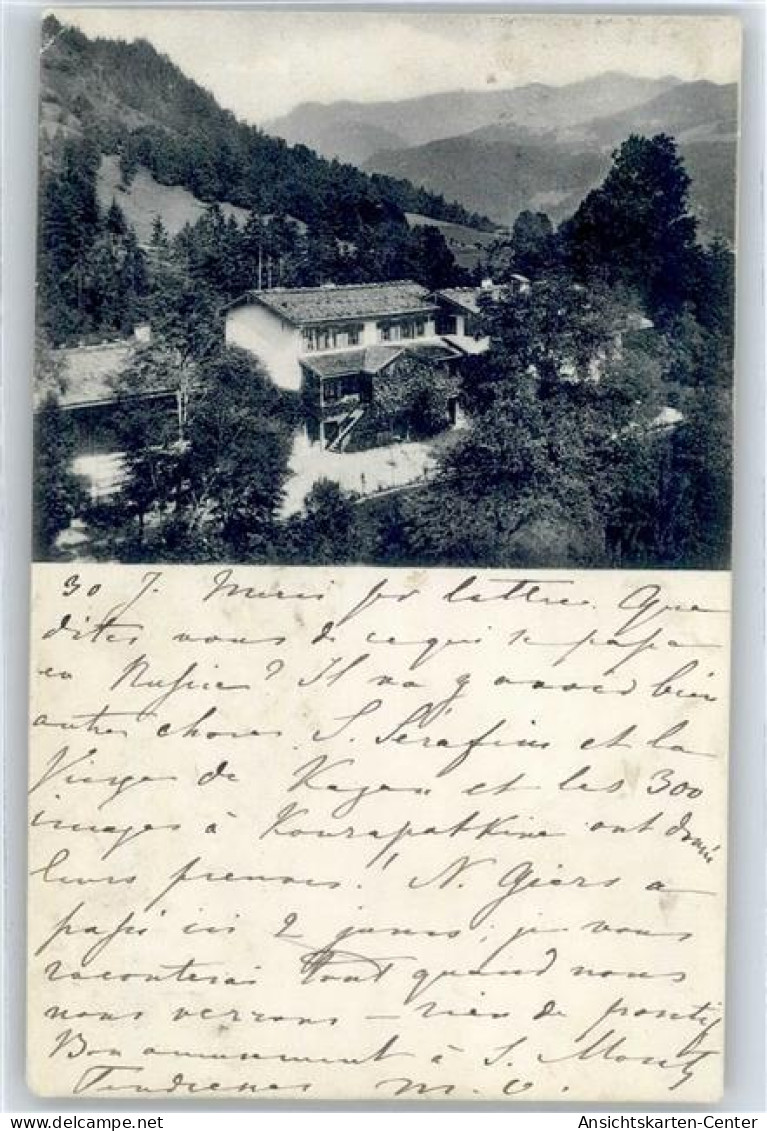 30 J. Merci for lettre. Que
dites vous de ce qui se passe
en Russie? Il va y avoir bien
autres choses. S. Séraphin et la
Vierge de Kazan et les 300
images à Kouropatkine ont donné
leurs preuves! N. Giers a
passé ici 2 jours; je vous
raconterai tout quand nous
nous verrons – rien de positif
Bon amusement à S. Moritz
Tendresses M. O.
Ansichtskarten-Center